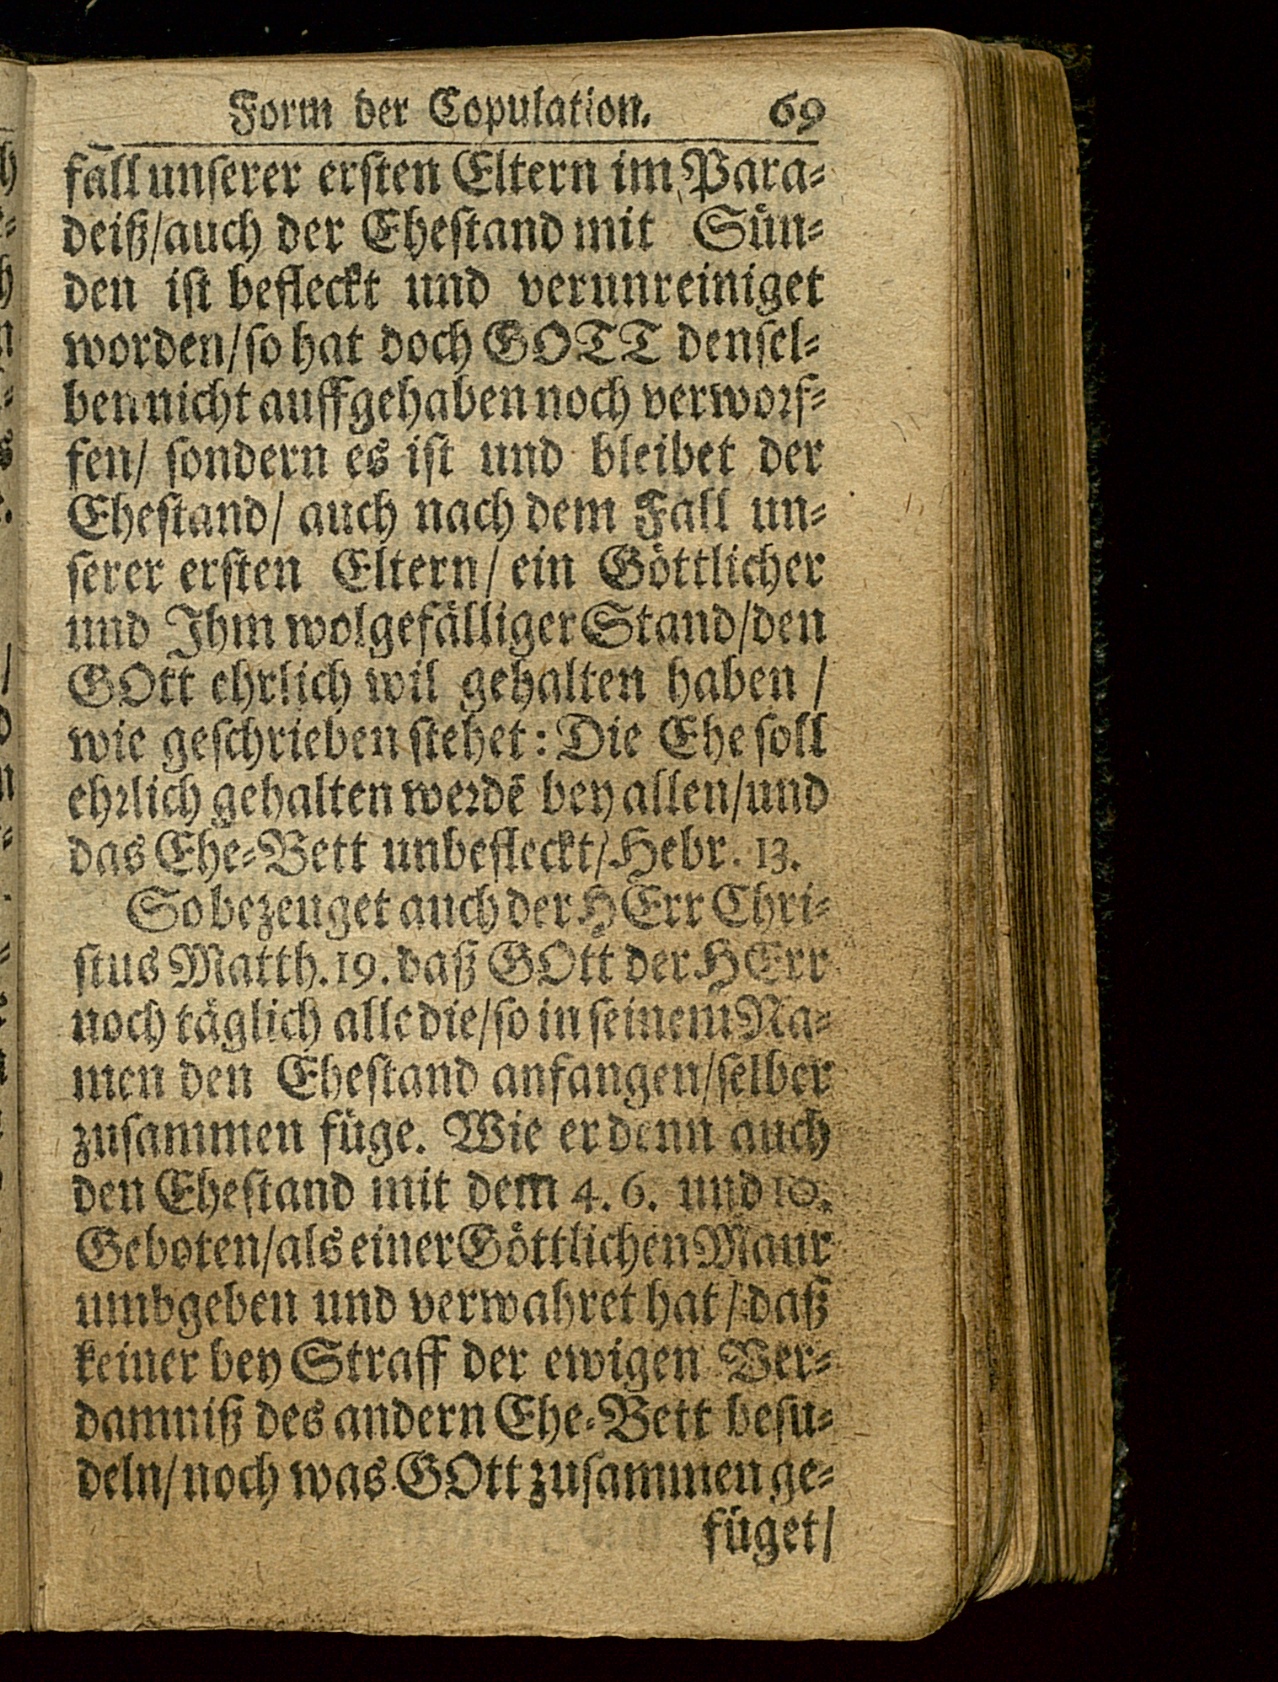 Form der Copulation. 69
fall unserer ersten Eltern im Para-
deiß/auch der Ehestand mit Sün-
den ist befleckt und verunreiniget
worden/so hat doch GOTT densel-
ben nicht auffgehaben noch verworf-
fen/ sondern es ist und bleibet der
Ehestand/ auch nach dem Fall un-
serer ersten Eltern/ ein Göttlicher
und Ihm wolgefälliger Stand/den
GOtt ehrlich wil gehalten haben /
wie geschrieben stehet: Die Ehe soll
ehrlich gehalten werdē bey allen/und
das Ehe-Bett unbefleckt/Hebr. 13.
So bezeuget auch der HErr Chri-
stus Matth. 19. daß GOtt der HErr
noch täglich alle die/so in seinem Na-
men den Ehestand anfangen/selber
zusammen füge. Wie er denn auch
den Ehestand mit dem 4. 6. und 10.
Geboten/als einer Göttlichen Maur
umbgeben und verwahret hat / daß
keiner bey Straff der ewigen Ver-
damniß des andern Ehe-Bett besu-
deln/noch was GOtt zusammen ge-
füget/